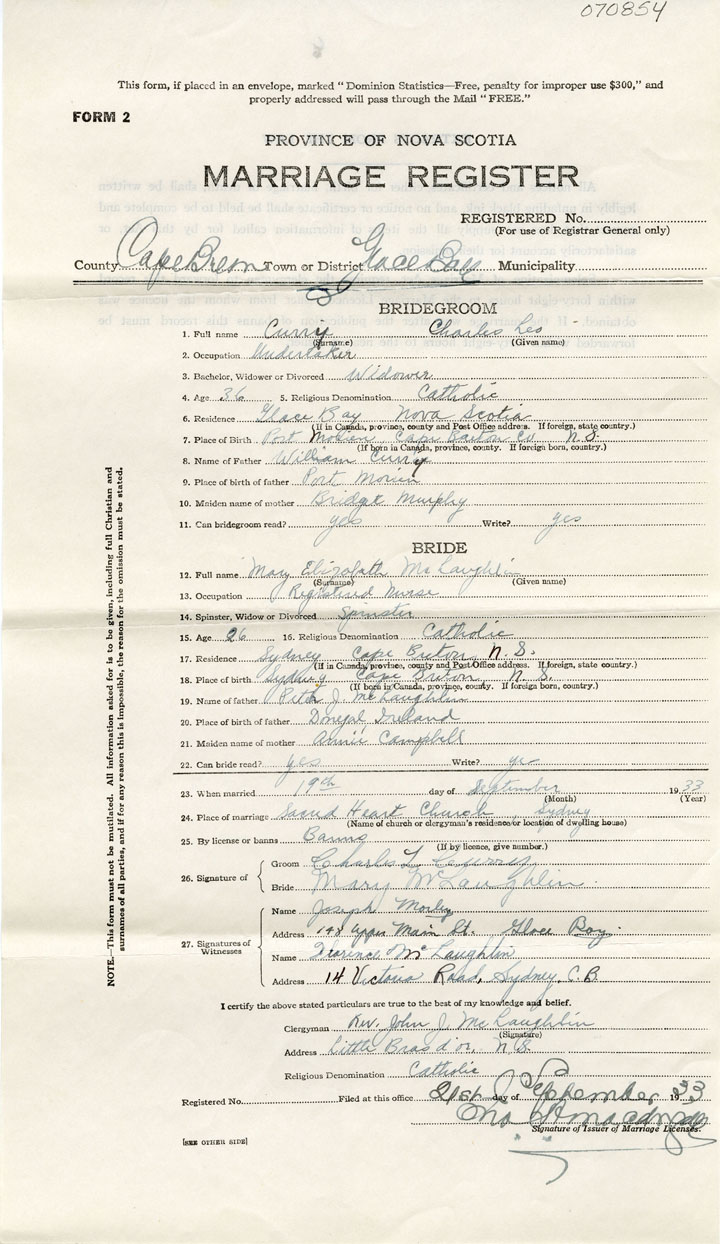 070854
This form, if placed in an envelope, marked “Dominion Statistics—Free, penalty for improper use $300,” and
properly addressed will pass through the Mail “FREE.”
FORM 2
PROVINCE OF NOVA SCOTIA
MARRIAGE REGISTER
REGISTERED No.
(For use of Registrar General only)
County Cape Breton Town or District Glace Bay Municipality
BRIDEGROOM
1. Full name Curry Charles Leo
(Surname) (Given name)
2. Occupation Undertaker
3. Bachelor, Widower or Divorced Widower
4. Age 36 5. Religious Denomination Catholic
6. Residence Glace Bay Nova Scotia
(If in Canada, province, county and Post Office address. If foreign, state country.)
7. Place of Birth Port Morien Cape Breton Co N.S.
(If born in Canada, province, county. If foreign born, country.)
8. Name of Father William Curry
9. Place of birth of father Port Morien
10. Maiden name of mother Bridget Murphy
11. Can bridegroom read? yes Write? yes
BRIDE
12. Full name Mary Elizabeth McLaughlin
(Surname) (Given name)
13. Occupation Registered Nurse
14. Spinster, Widow or Divorced Spinster
15. Age 26 16. Religious Denomination Catholic
17. Residence Sydney Cape Breton N.S.
(If in Canada, province, county and Post Office address. If foreign, state country.)
18. Place of birth Sydney Cape Breton N.S.
(If born in Canada, province, county. If foreign born, country.)
19. Name of father Peter J. McLaughlin
20. Place of birth of father Donegal Ireland
21. Maiden name of mother Annie Campbell
22. Can bride read? yes Write? yes
23. When married 19th day of September 1933
(Month) (Year)
24. Place of marriage Sacred Heart Church, Sydney
(Name of church or clergyman's residence or location of dwelling house)
25. By license or banns Banns
(If by licence, give number.)
26. Signature of
Groom Charles L Curry
Bride Mary McLaughlin
27. Signatures of Witnesses
Name Joseph Morley
Address Upper Main St. Glace Bay.
Name Florence McLaughlin
Address 14 Victoria Road, Sydney, C.B.
I certify the above stated particulars are true to the best of my knowledge and belief.
Clergyman Rev. John J. McLaughlin
(Signature)
Address Little Bras d'or, N.S.
Religious Denomination Catholic
Registered No. Filed at this office 21st day of September 1933
Signature of Issuer of Marriage Licenses.
[SEE OTHER SIDE]
NOTE.—This form must not be mutilated. All information asked for is to be given, including full Christian and
surnames of all parties, and if for any reason this is impossible, the reason for the omission must be stated.